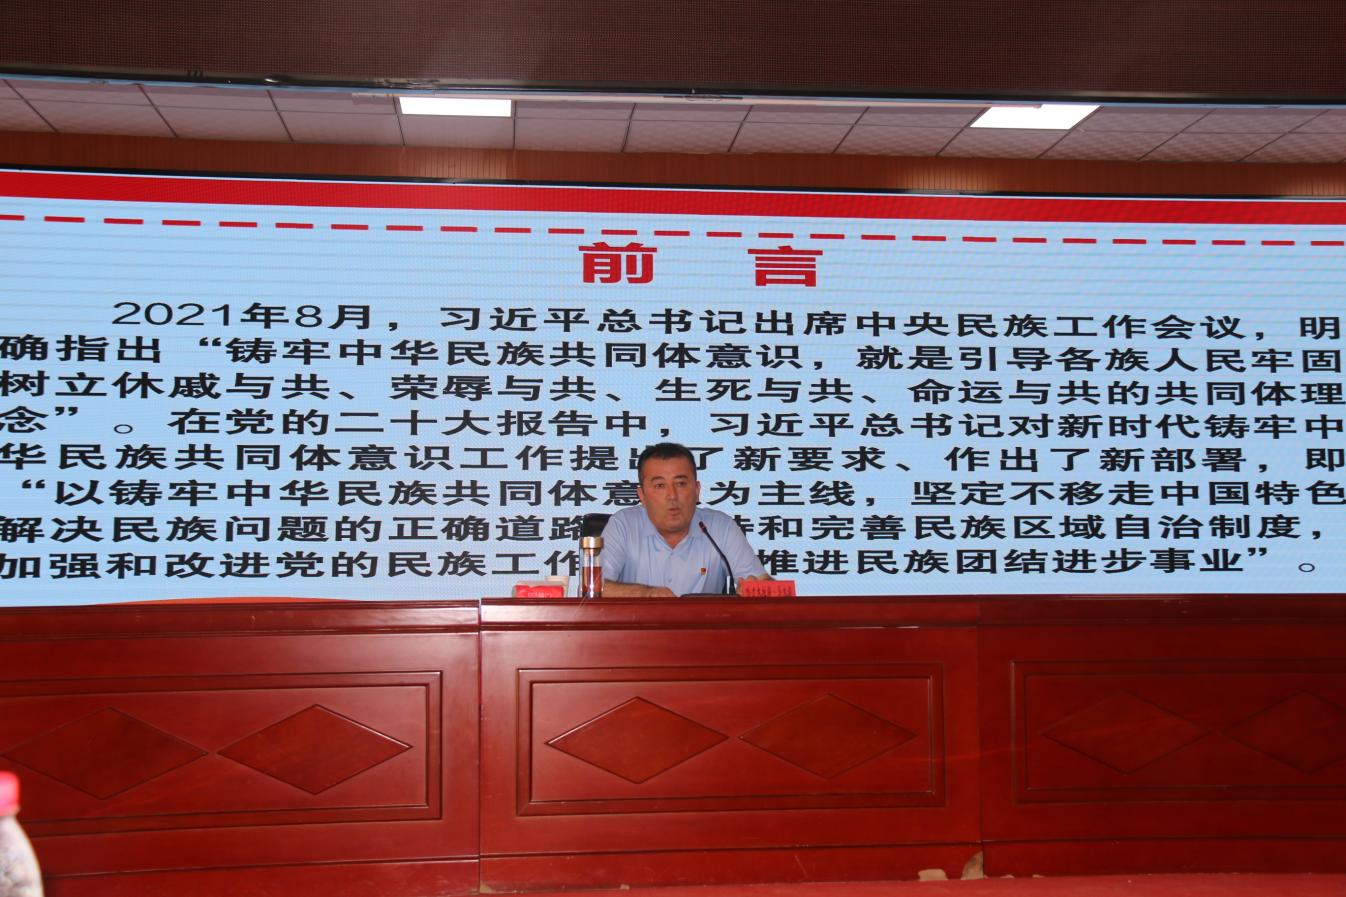 前 言
2021年8月，习近平总书记出席中央民族工作会议，明
确指出“铸牢中华民族共同体意识，就是引导各族人民牢固
树立休戚与共、荣辱与共、生死与共、命运与共的共同体理
念”。在党的二十大报告中，习近平总书记对新时代铸牢中
华民族共同体意识工作提出了新要求、作出了新部署，即
“以铸牢中华民族共同体意 为主线，坚定不移走中国特色
解决民族问题的正确道路 和完善民族区域自治制度，
加强和改进党的民族工作 推进民族团结进步事业”。